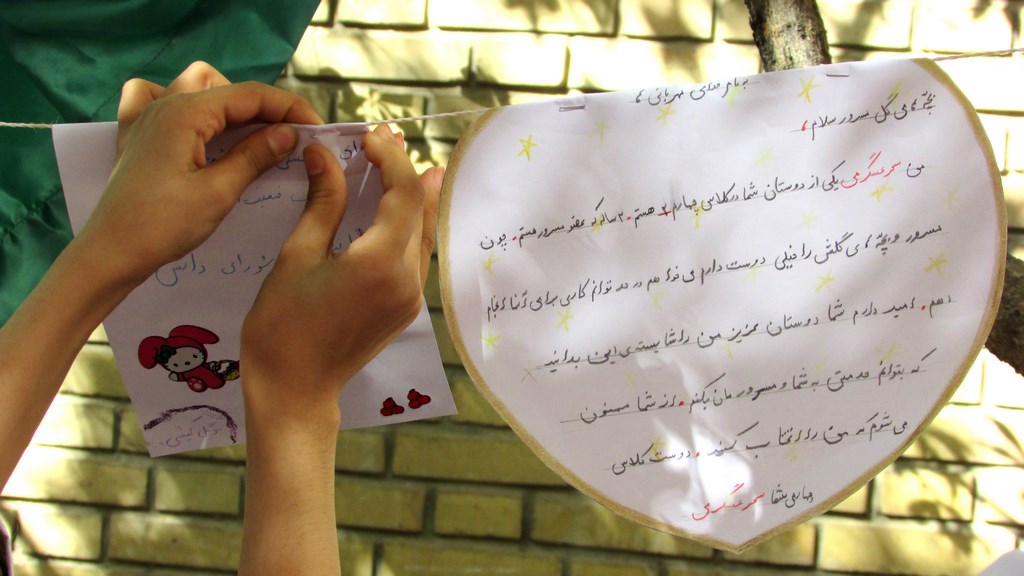 بنام خدای مهربانی ها
بچّه های گل سرور سلام،
من سحر عسگرمی یکی از دوستان شما در کلاس چهارم ۲ هستم. ۲ سال که عضو سرور هستم. چون
سرور و بچّه های گلش را خیلی دوست دارم می خواهم در حد توانم کاری برای آنها انجام
دهم. امید دارم شما دوستان عزیز من را شایسته ی این بدانید
که بتوانم خدمتی به شما و سرورمان بکنم. از شما ممنون
می شوم که من را انتخاب کنید. دوست کلاس
چهارمی شما
شورای دانش